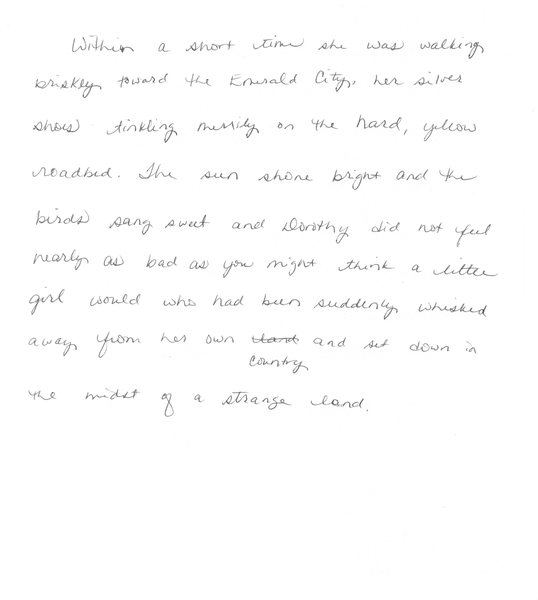 Within a short time she was walking
briskley toward the Emerald City, her silver
shoes tinkling merrily on the hard, yellow
roadbed. The sun shone bright and the
birds sang sweet and Dorothy did not feel
nearly as bad as you might think a little
girl would who had been suddenly whisked
away from her own land and set down in
country
the midst of a strange land.